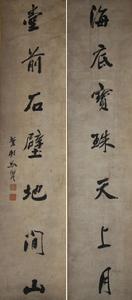 海底寶珠天上月
堂前石壁地間山